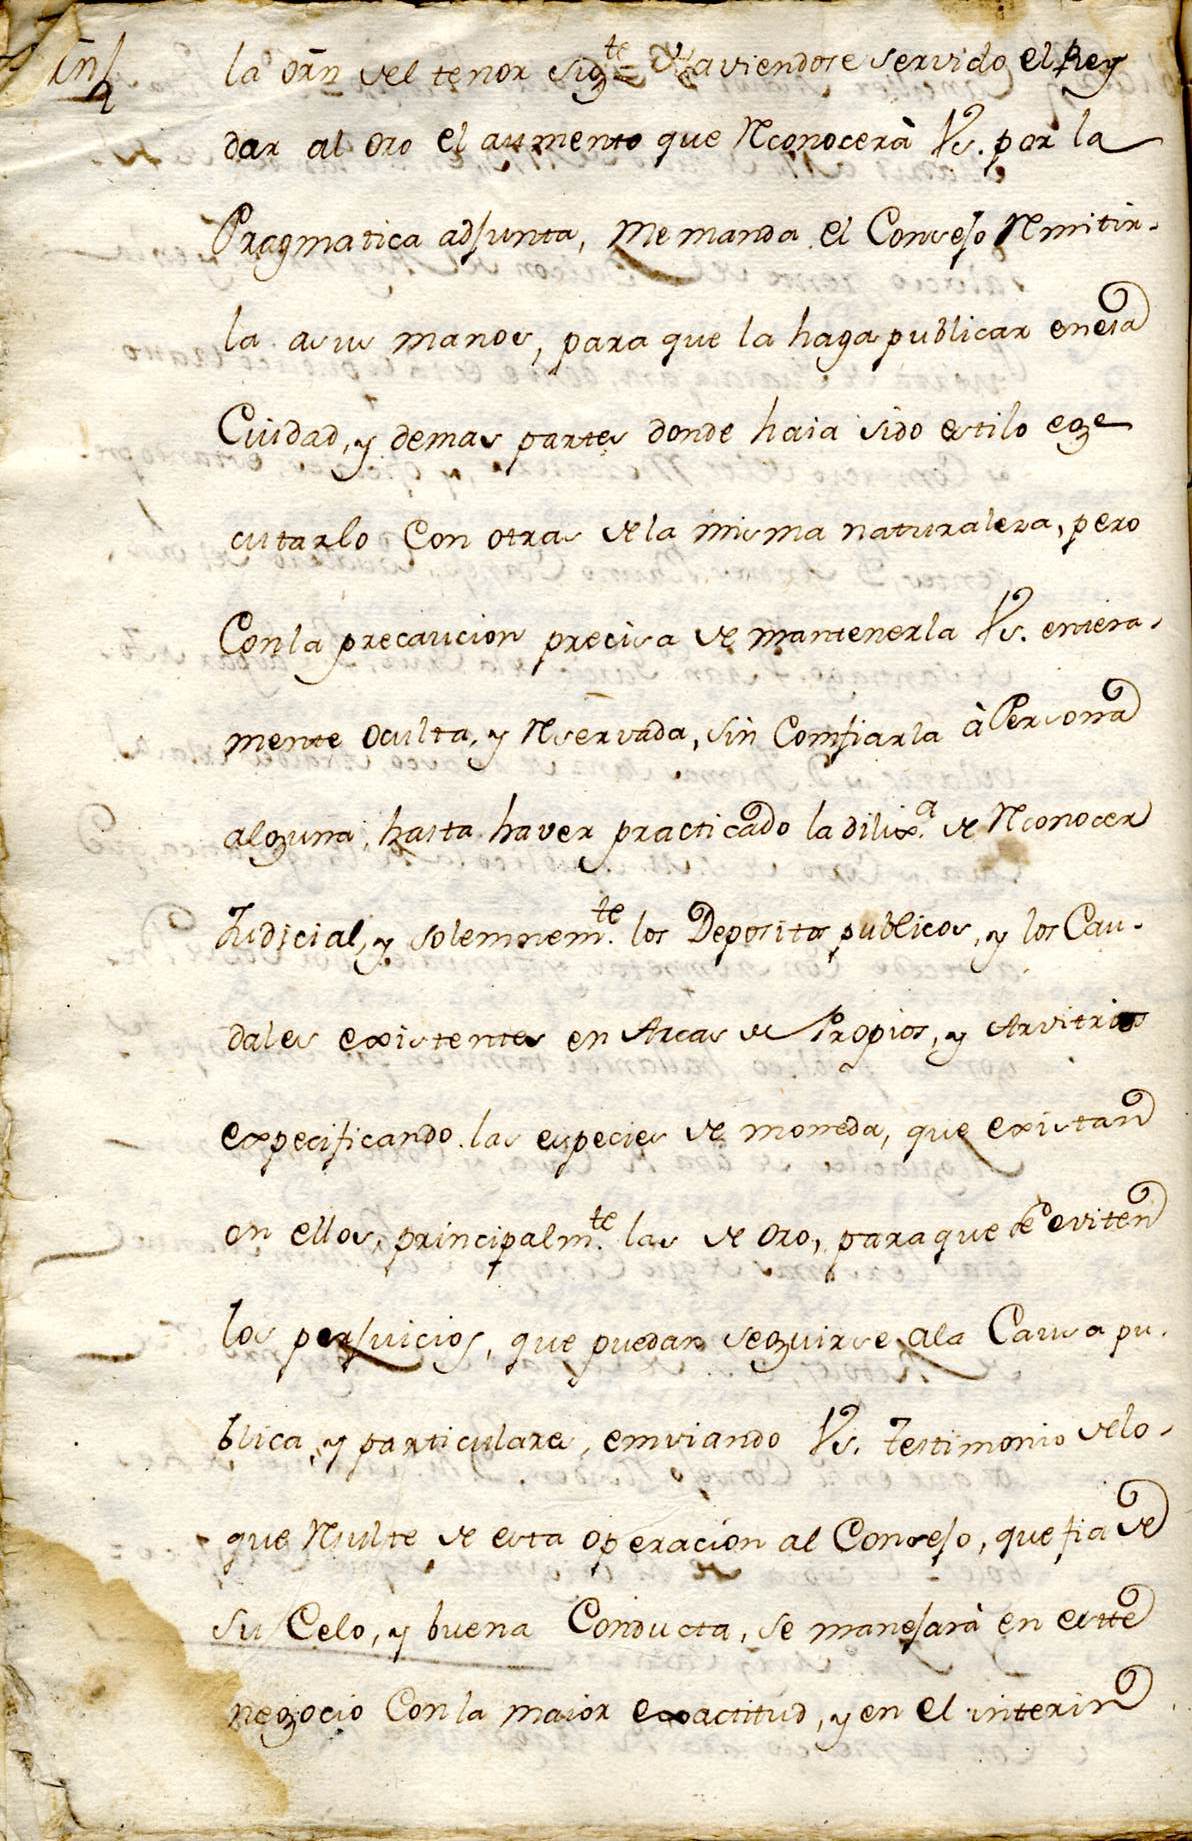 la orñ del tenor sigte = Haviendose servido el Rey
dar al oro el aumento que Reconocerà Vs. por la
Pragmatica adjunta, me manda el Consejo Remitir-
la asus manos, para que la haga publicar enesa
Ciudad, y demas partes donde haia sido estilo exe
cutarlo Con otras dela misma naturaleza, pero
Conla precaucion precisa de mantenerla Vs. entera-
mente oculta, y Reservada, sin Comfiarla à Persona
alguna, hasta haver practicado la dilixa. de Reconocer
Judicial, y solemnemte. los Depositos publicos, y los Cau-
dales existentes en Arcas de Propios, y Arvitrios
expecificando las especies de moneda, que existan
en ellos, principalmte. las de oro, paraque se eviten
los perjuicios, que puedan seguirse ala Causa pu-
blica, y particulares, emviando Vs. testimonio delo-
que Resulte de esta operacion al Consejo, que fia de
su Celo, y buena Conducta, se manejarà en este
negocio Conla maior exactitud, y en el interin